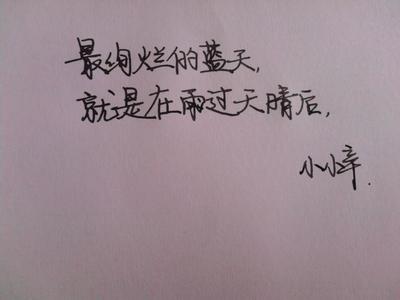 最绚烂的蓝天,
就是在雨过天晴后,
小小梓.